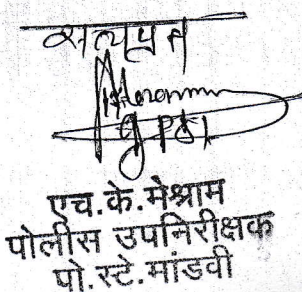 सत्यप्रत
PSI
एच.के.मेश्राम
पोलीस उपनिरीक्षक
पो.स्टे.मांडवी